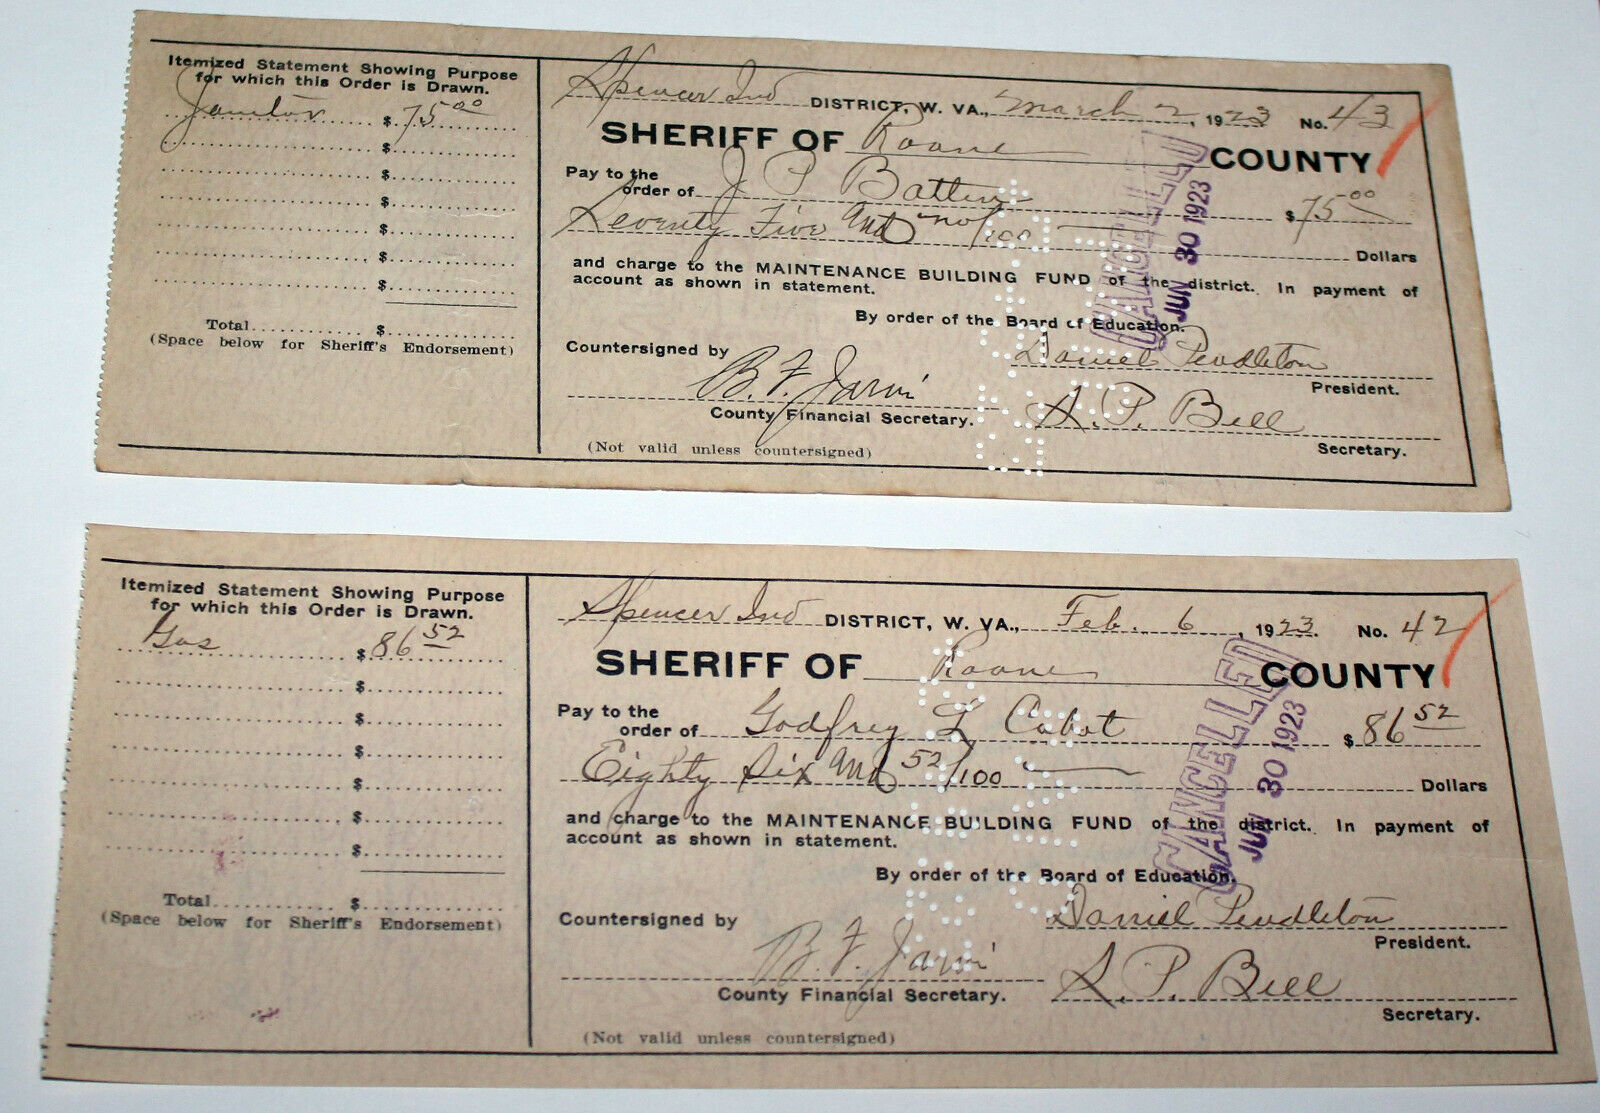 Itemized Statement Showing Purpose
for which this Order is Drawn.
Janitor $ 75 00
$
$
$
$
$
$
Total $
(Space below for Sheriff's Endorsement)
Spencer Ind DISTRICT, W. VA., March 2, 1923 No. 43
SHERIFF OF Roane COUNTY
Pay to the
order of J P Batten $ 75 00
Seventy Five and no/100 Dollars
and charge to the MAINTENANCE BUILDING FUND of the district. In payment of
account as shown in statement.
By order of the Board of Education.
Countersigned by Daniel Pendleton
President.
B. F. Jarvis
County Financial Secretary. S. P. Bell
(Not valid unless countersigned) Secretary.
CANCELLED
JUN 30 1923
Itemized Statement Showing Purpose
for which this Order is Drawn.
Gas $ 86 52
$
$
$
$
$
$
Total $
(Space below for Sheriff's Endorsement)
Spencer Ind DISTRICT, W. VA., Feb. 6, 1923. No. 42
SHERIFF OF Roane COUNTY
Pay to the
order of Godfrey L Cabot $ 86 52
Eighty Six and 52/100 Dollars
and charge to the MAINTENANCE BUILDING FUND of the district. In payment of
account as shown in statement.
By order of the Board of Education.
Countersigned by Daniel Pendleton
President.
B. F. Jarvis
County Financial Secretary. S. P. Bell
Secretary.
(Not valid unless countersigned)
CANCELLED
JUN 30 1923